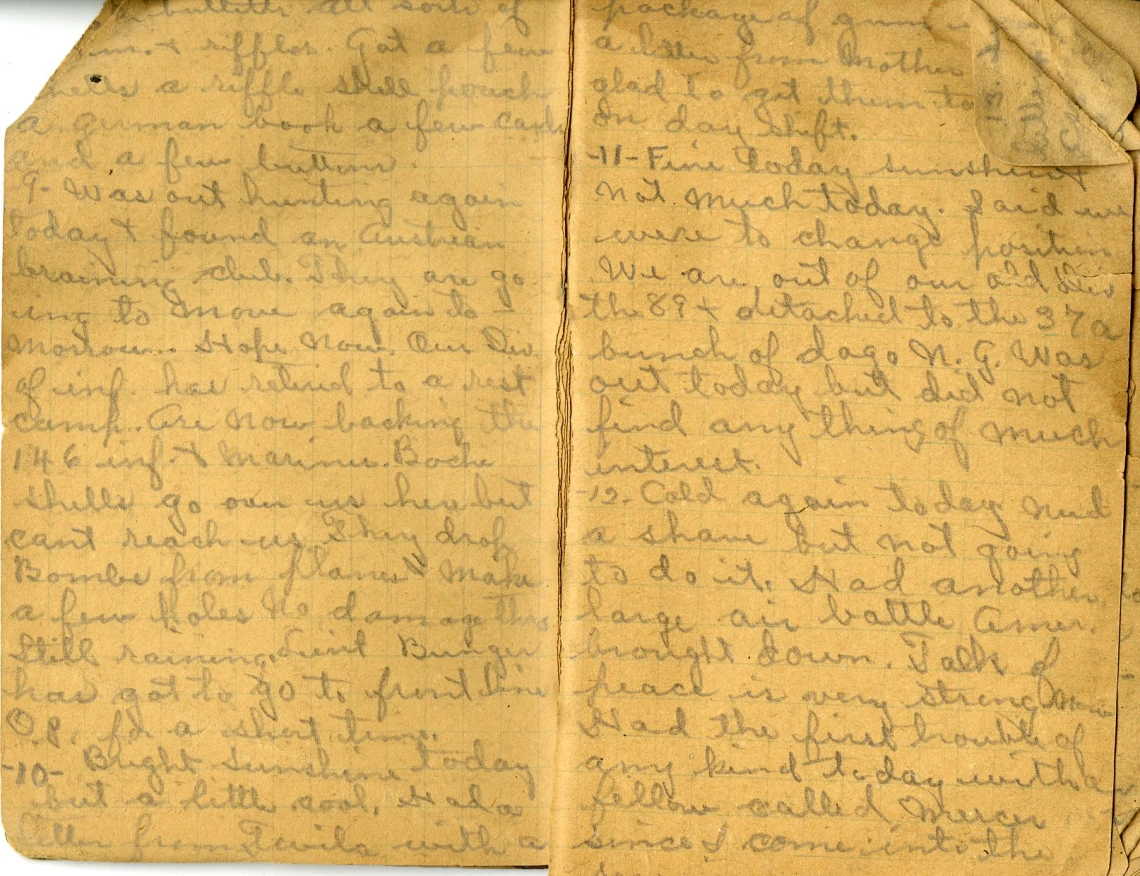 bulletts all sorts of
& riffles. Got a few
a riffle shell pouch
a german book a few cards
and a few buttons.
9- Was out hunting again
today & found an Austrian
braining club. They are go
ing to move again to
morrow. Hope Now. Our Div
of inf. has retired to a rest
camp. Are now backing the
146 inf. & Marines. Boche
shells go over us here but
cant reach us. They drop
Bombs from planes & make
a few holes no damage tho
Still raining. Lieut Burger
has got to go to front line
O.P. for a short time.
-10- Bright Sunshine today
but a little cool. Had a
letter from Twila with a
package of gum
a letter from Mother
glad to get them to
On day shift.
-11- Fine today sunshine
not much today. Said we
were to change position
We are out of our old Div
the 89 & detached to the 37 a
bunch of dago N.G. Was
out today but did not
find any thing of much
interest.
-12. Cold again today need
a shave but not going
to do it. Had another
large air battle Amer.
brought down. Talk of
peace is very strong now
Had the first trouble of
any kind today with a
fellow called Mercer
since I come into the